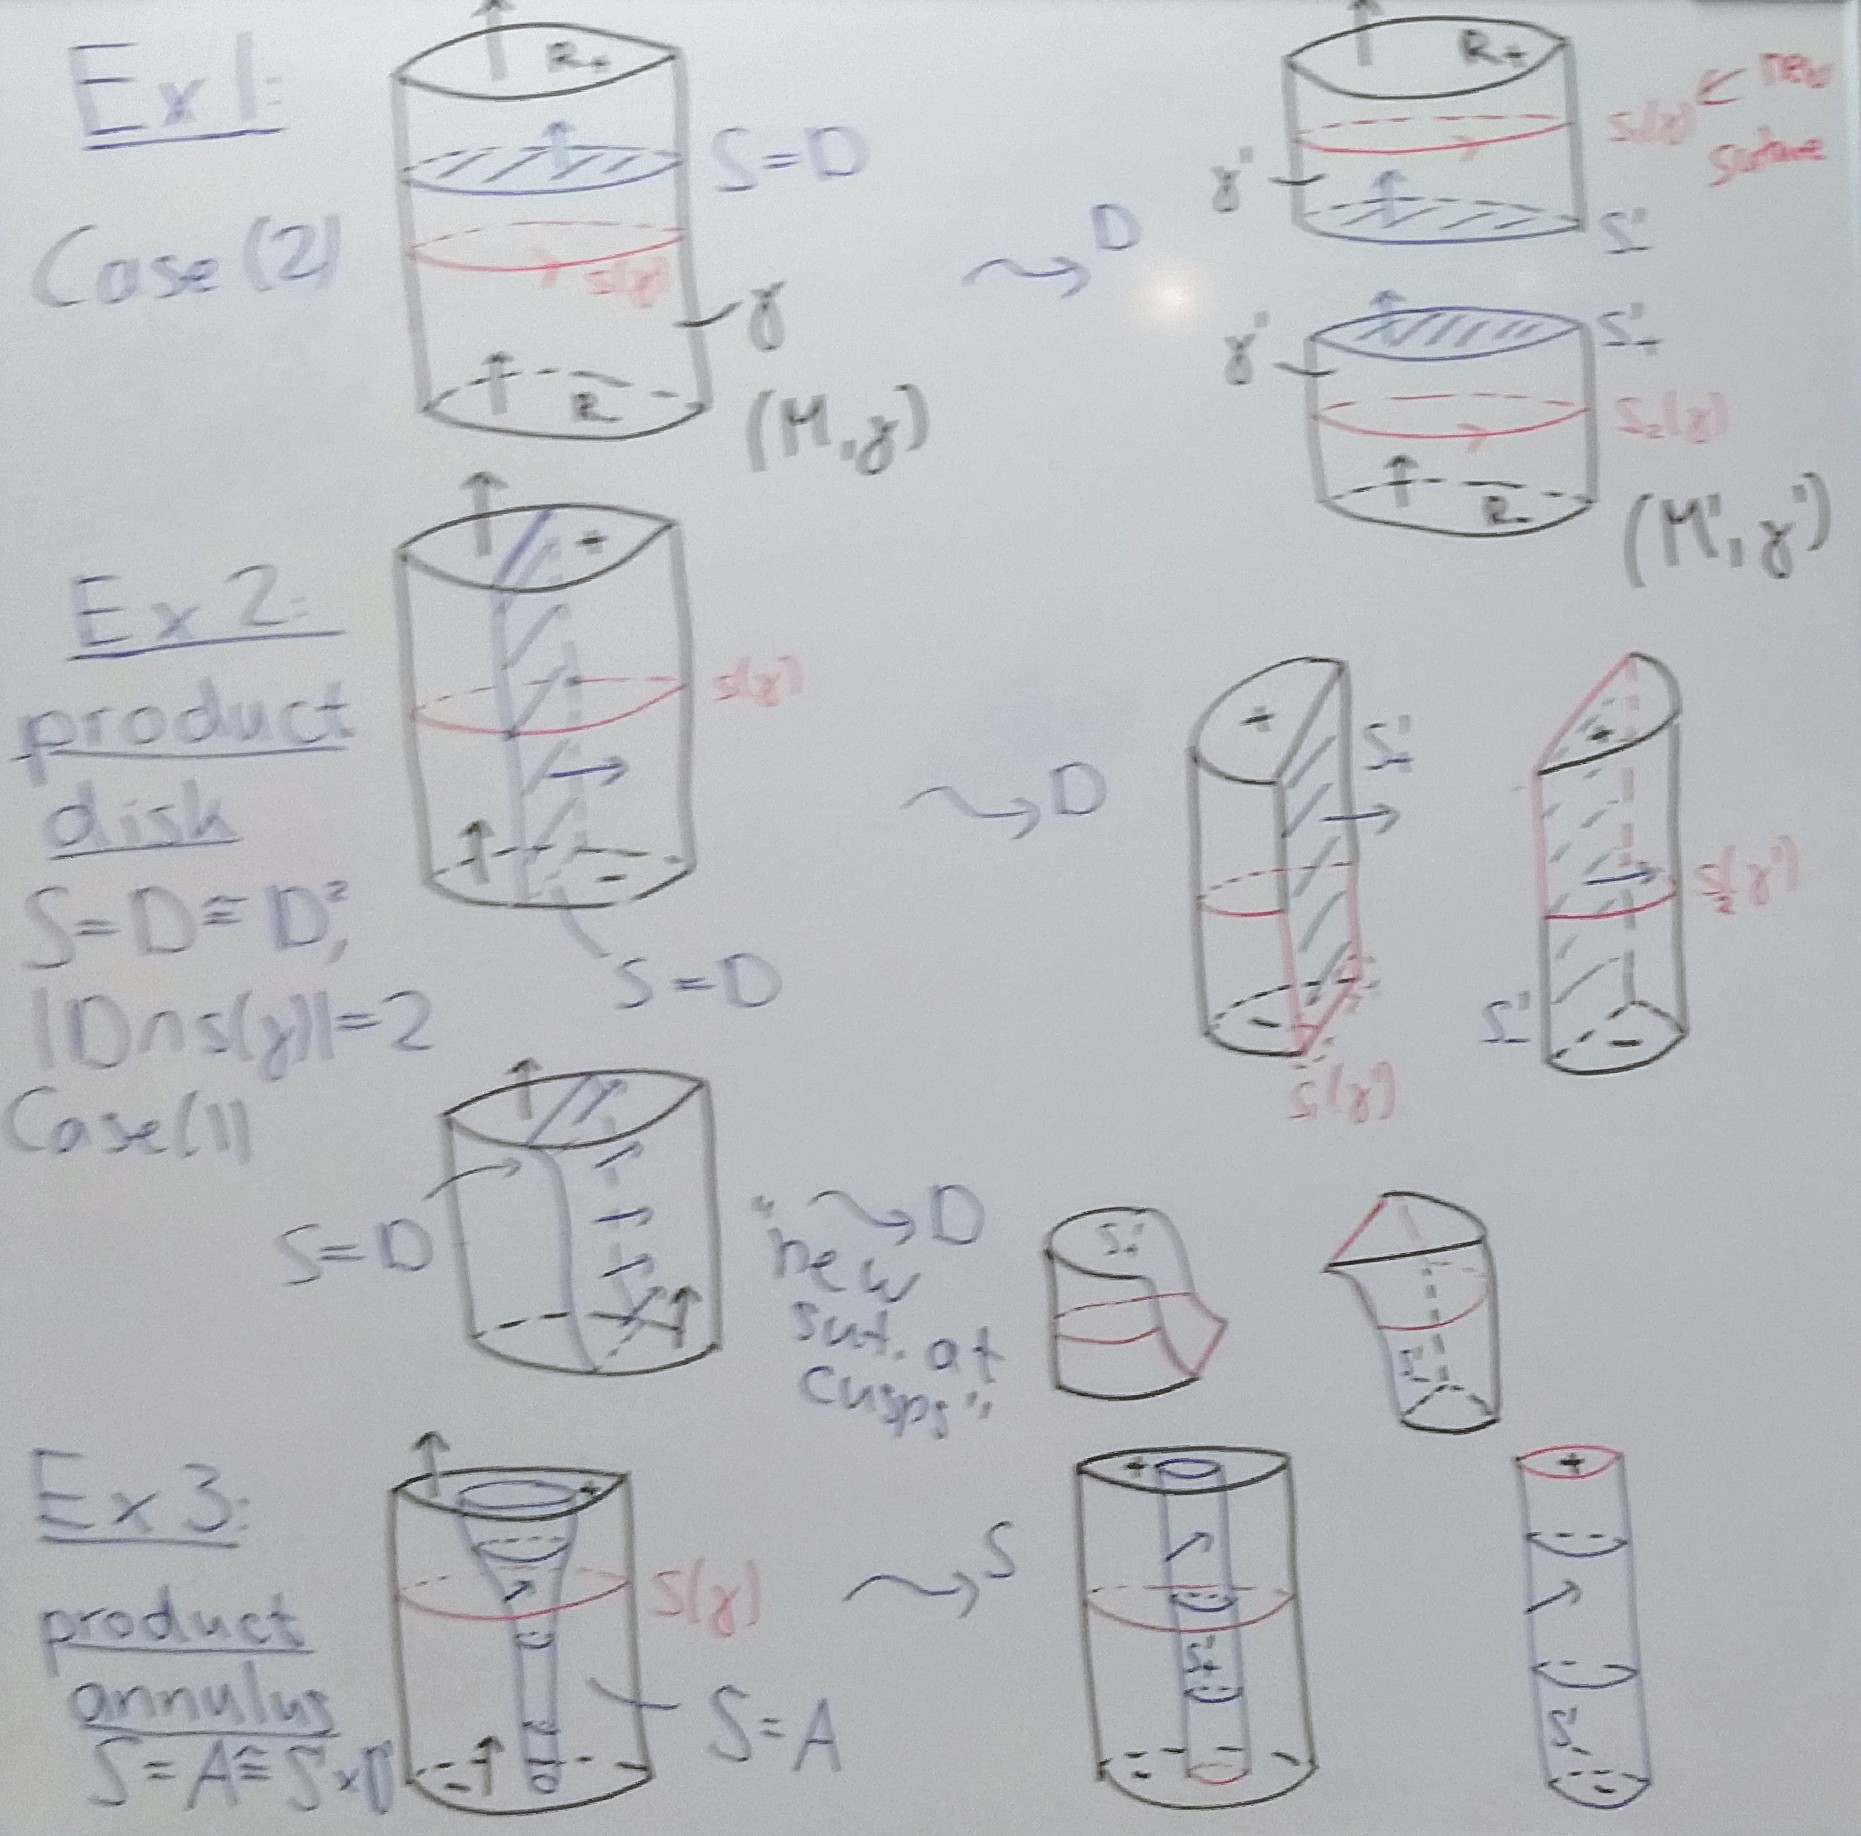 Ex 1:
Case (2)
R+
S=D
s(γ)
γ
R
(M,γ)
⤳D
R+
s₁(γ) ← new
suture
γ'
S'_
γ'
S'+
s₂(γ)
R-
(M',γ')
Ex 2:
product
disk
S=D≅D²,
|D∩s(γ)|=2
Case (1)
+
s(γ)
-
S=D
⤳D
+
S'+
-
s₁(γ')
+
s₂(γ')
S'_
-
S=D
"⤳D
new
sut. at
cusps"
S'+
S'_
Ex 3:
product
annulus
S=A≅S'×I
+
s(γ)
S=A
-
⤳S
+
S'+
-
+
S'_
-